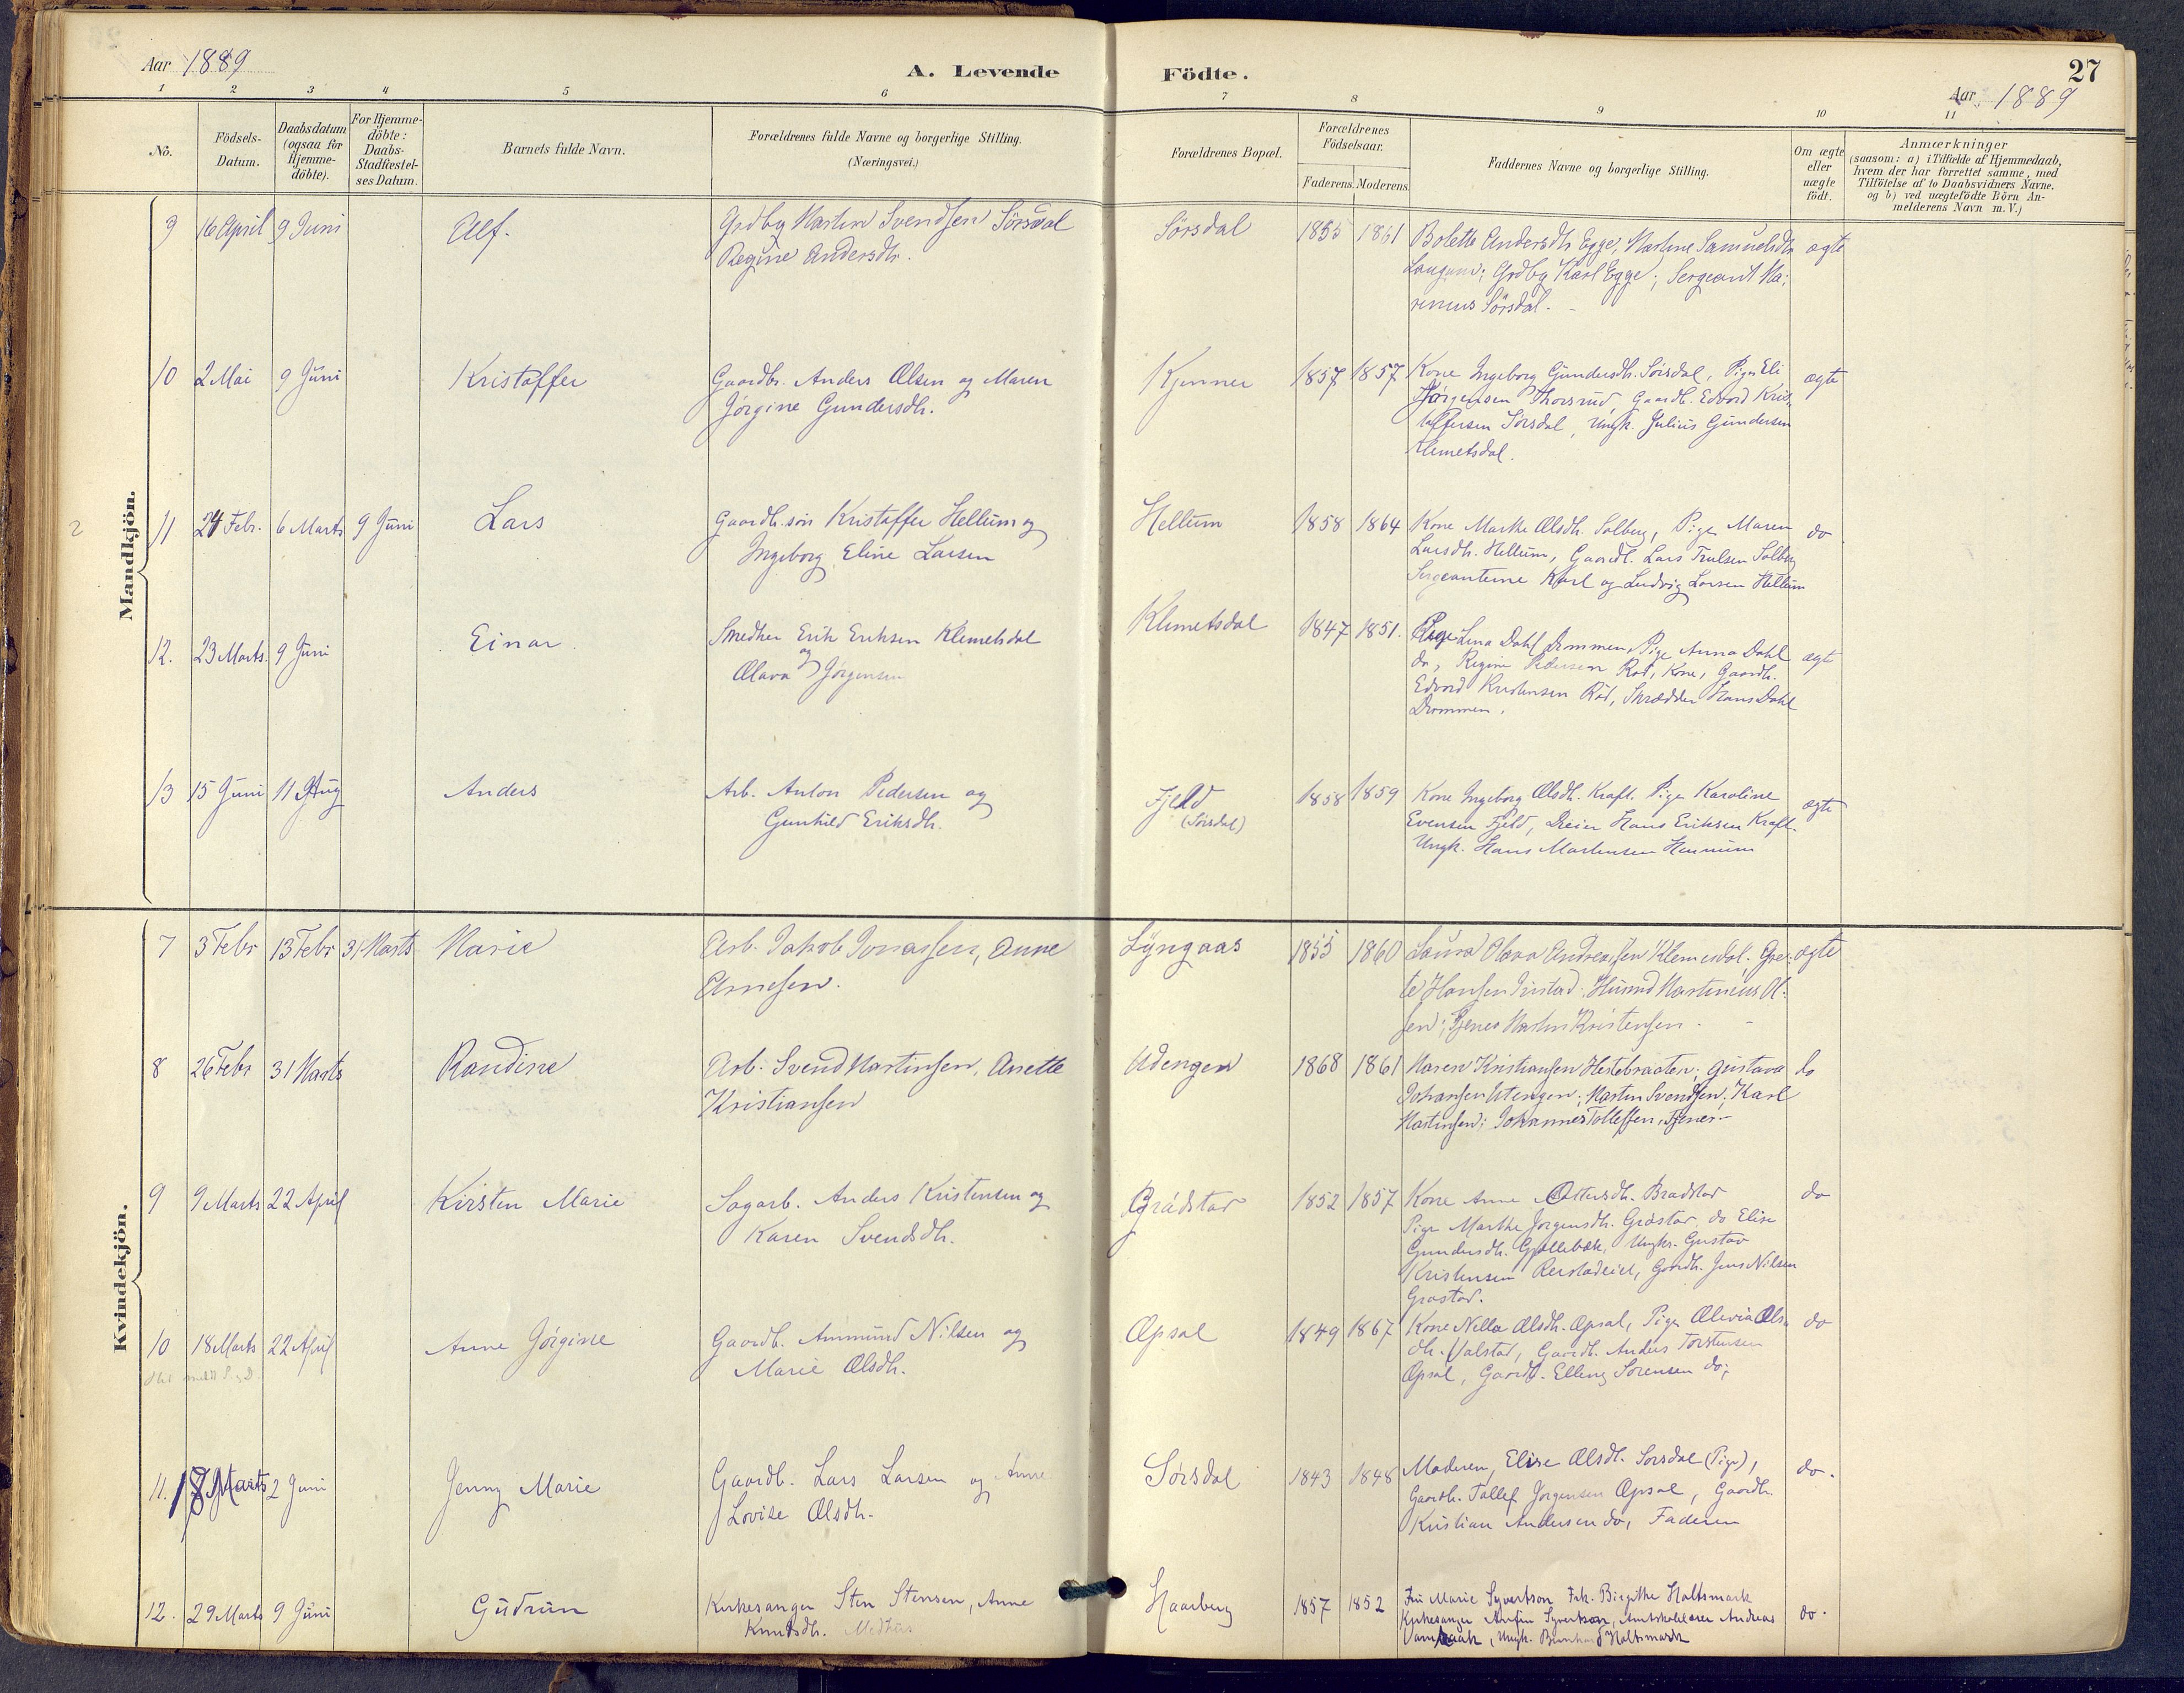 Aar 1889
A. Levende Födte.
27
Aar 1889
1 2 3 4 5 6 7 8 9 10 11
No.
Födsels-Datum.
Daabsdatum (ogsaa for Hjemme-döbte).
For Hjemme-döbte: Daabs-Stadfæstel-ses Datum.
Barnets fulde Navn.
Forældrenes fulde Navne og borgerlige Stilling.
(Næringsvei.)
Forældrenes Bopæl.
Forældrenes Födselsaar.
Faderens. Moderens.
Faddernes Navne og borgerlige Stilling.
Om ægte eller uægte födt.
Anmærkninger
(saasom: a) i Tilfælde af Hjemmedaab,
hvem der har forrettet samme, med
Tilföielse af to Daabsvidners Navne.
og b) ved uægtefödte Börn An-
melderens Navn m. V.)
Mandkjön.
9 16 April 9 Juni Alf. Grdbg Martin Svendsen Sörsdal Sörsdal 1855 1861 Bolette Andersdtr Egge, Martine Samuelsdtr ægte
Regine Andersdtr. Grdbg Karl Egge; Sergeant Ma-
renius Sörsdal.
10 2 Mai 9 Juni Kristoffer Gaardbr. Anders Olsen og Maren Kjenner 1857 1857 Kone Ingeborg Gundersdh. Sörsdal, Pige Eli ægte
Jörgine Gundersdh. Jörgensen Thorsrud, Gaardb. Edvard Kris-
toffersen Sörsdal, Ungk. Julius Gundersen
Klemetsdal.
2 11 24 Febr. 6 Marts 9 Juni Lars Gaardb. sön Kristoffer Hellum og Hellum 1858 1864 Kone Marthe Olsdh. Solberg, Pige Maren do
Ingeborg Eline Larsen Larsdh. Hellum, Gaardb. Lars Trulsen Solberg
Sergeanterne Karl og Ludvig Larsen Hellum
12. 23 Marts. 9 Juni Einar Smedker Erik Eriksen Klemetsdal Klemetsdal 1847 1851. Pige Lina Dahl Drammen, Pige Anna Dahl ægte
og Olava Jörgensen do, Regine Pedersen Röd, Kone, Gaardb.
Edvard Kristensen Röd, Skrædder Hans Dahl
Drammen.
13 15 Juni 11 Aug Anders Arb. Anton Pedersen og Fjeld 1858 1859 Kone Ingeborg Olsdh. Kraft. Pige Karoline ægte
Gunhild Eriksdh. (Sörsdal) Evensen Fjeld, Dreier Hans Eriksen Kraft.
Ungk. Hans Martinsen Hennum
Kvindekjön.
7 3 Febr 13 Febr 31 Marts Marie Arb. Jakob Jonassen, Anne Lyngaas 1855 1860 Laura Olava Andreassen Klemetsdal. Gre- ægte
Arnesen. te Hansen Husmd Martinius Ol-
sen; Tjener Martin Kristensen.
8 26 Febr 31 Marts Randine Arb. Svend Martinsen, Anette Udengen 1868 1861 Maren Kristiansen Hestebraaten; Gustava do
Kristiansen Johansen Utengen; Martin Svendsen; Karl
Martinsen; Johannes Tollefsen, Tjener.
9 9 Marts 22 April Kirsten Marie Sagarb. Anders Kristensen og Grådstad 1852 1857 Kone Anne Ottersdh. Bradstad do
Karen Svendsdh. Pige Marthe Jörgensdh. Gråstad, do Elise
Gundersdh. Gjellebæk, Ungkr. Gustav
Kristensen Gaardb. Jens Nilsen
Grastad.
10 18 Marts 22 April Anne Jörgine Gaardb. Ammund Nilsen og Opsal 1849 1867 Kone Nella Olsdh. Opsal, Pige Olivia Ols- do
Marie Olsdh. dh. Valstad, Gaardb. Anders Torstensen
Opsal, Gaardb. Elling Sörensen do;
11. 17 Marts 2 Juni Jenny Marie Gaardb. Lars Larsen og Anne Sörsdal 1843 1848 Moderen, Elise Olsdh. Sörsdal (Pige), do.
Lovise Olsdh. Gaardb. Tollef Jörgensen Opsal, Gaardb.
Kristian Andersen do, Faderen
12. 29 Marts 9 Juni Gudrun Kirkesanger Sten Stensen, Anne Haarberg 1857 1852 Fru Marie Syvertson Frk. Birgithe Holtsmark do.
Knudsdh. Medhus Kirkesanger Anfin Syvertson, Amtskolelærer Andreas
Ungk. Bernhard Holtsmark